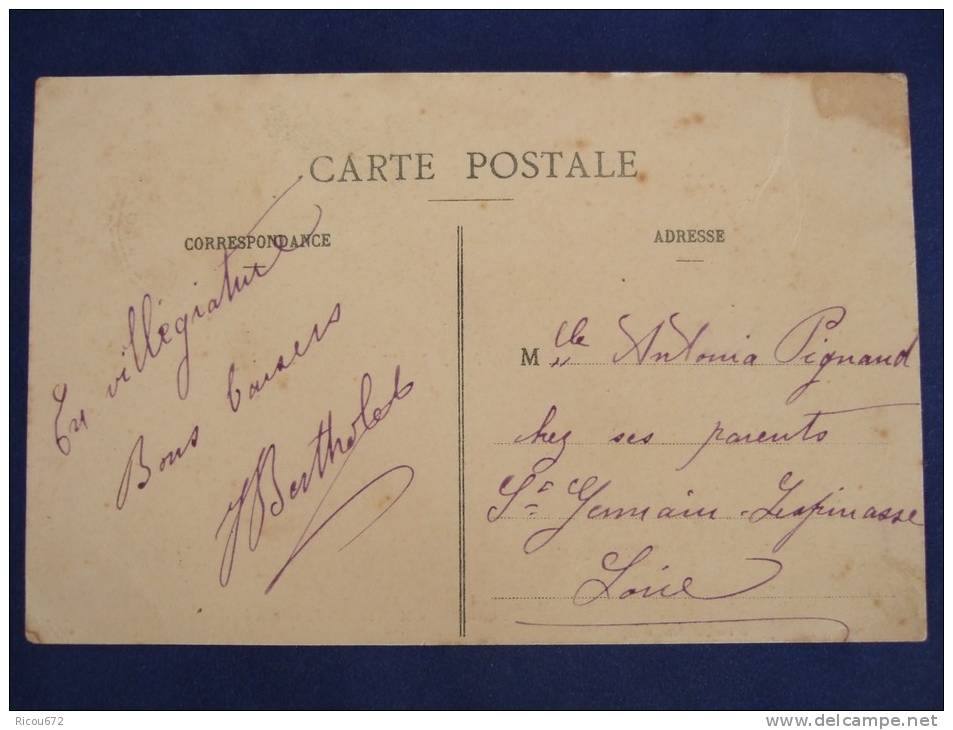 CARTE POSTALE
CORRESPONDANCE
En villégiature
Bons baisers
JBerthelet
ADRESSE
Mlle Antonia Pignaud
chez ses parents
St Germain-Lespinasse
Loire
Ricou672
www.delcampe.net